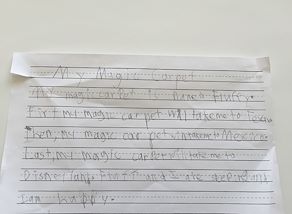 My Magic Carpet
My magic carpet is named Fluffy.
First, my magic carpet will take me to Texas.
Then, my magic carpet will take me to Mexico.
Last, my magic carpet will take me to
Disneyland. Fluffy and I ate
I am happy.